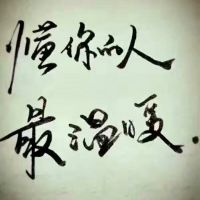 懂你的人
最温暖.